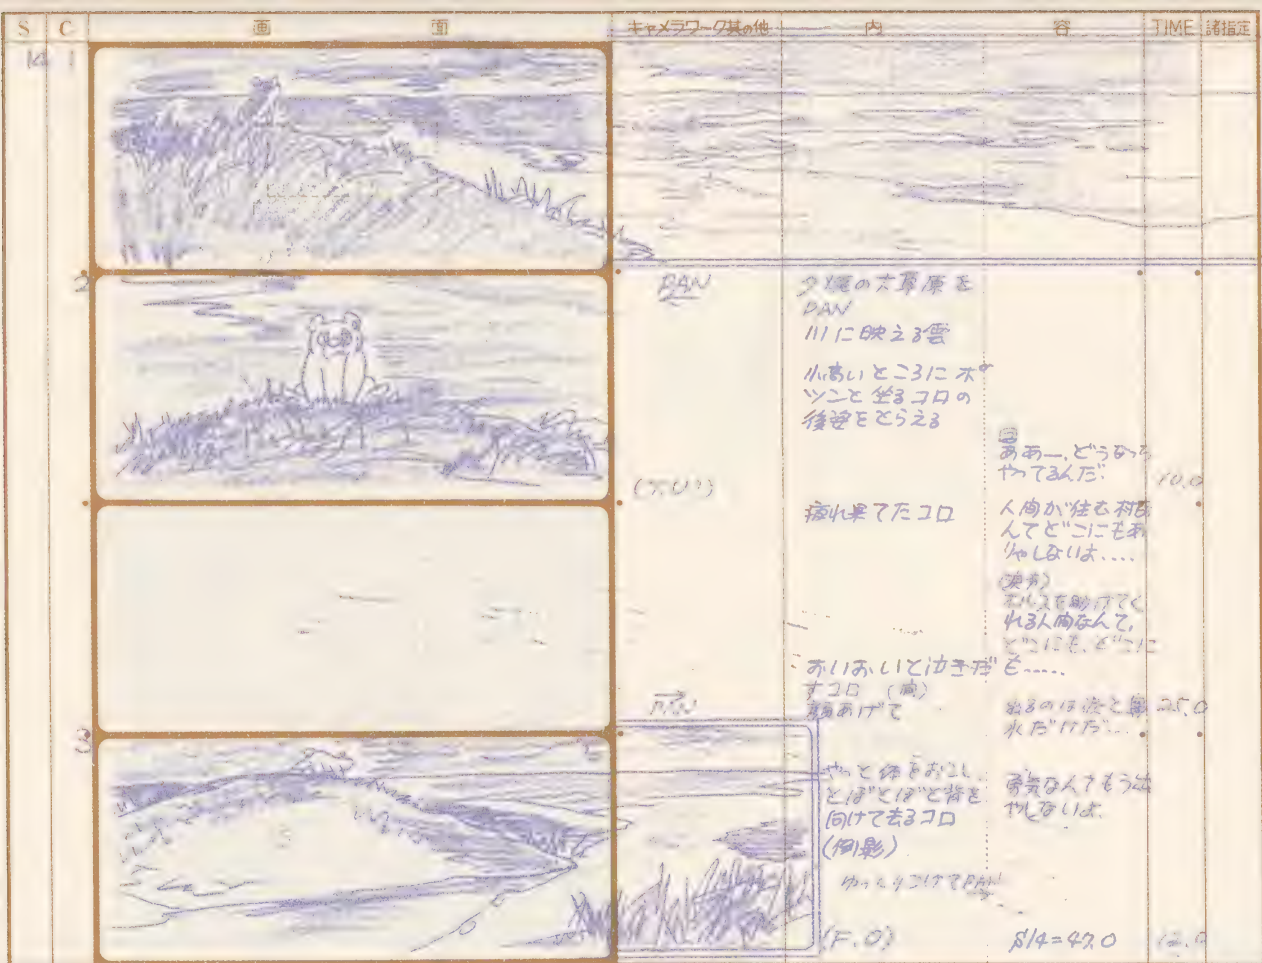 S C 画 面 キャメラワーク其の他 内 容 TIME 諸指定
14 1
2
PAN
夕焼の大草原を
PAN
川に映える雲
小高いところにポ
ツンと坐るコロの
後姿をとらえる
ああー、どうなっち
やってるんだ.
10.0
(T.U)
疲れ果てたコロ
人間が住む村な
んてどこにもあ
りゃしないよ....
ホルスを助けてく
れる人間なんて、
どこにも、どこに
も.....
おいおいと泣きだ
すコロ
顔あげて
25.0
3
やっと体をおこし、
とぼとぼと背を
向けて去るコロ
勇気なんてもう出
やしないよ.
ゆっくりつけてPAN
(F.O)
S14=47.0
12.0